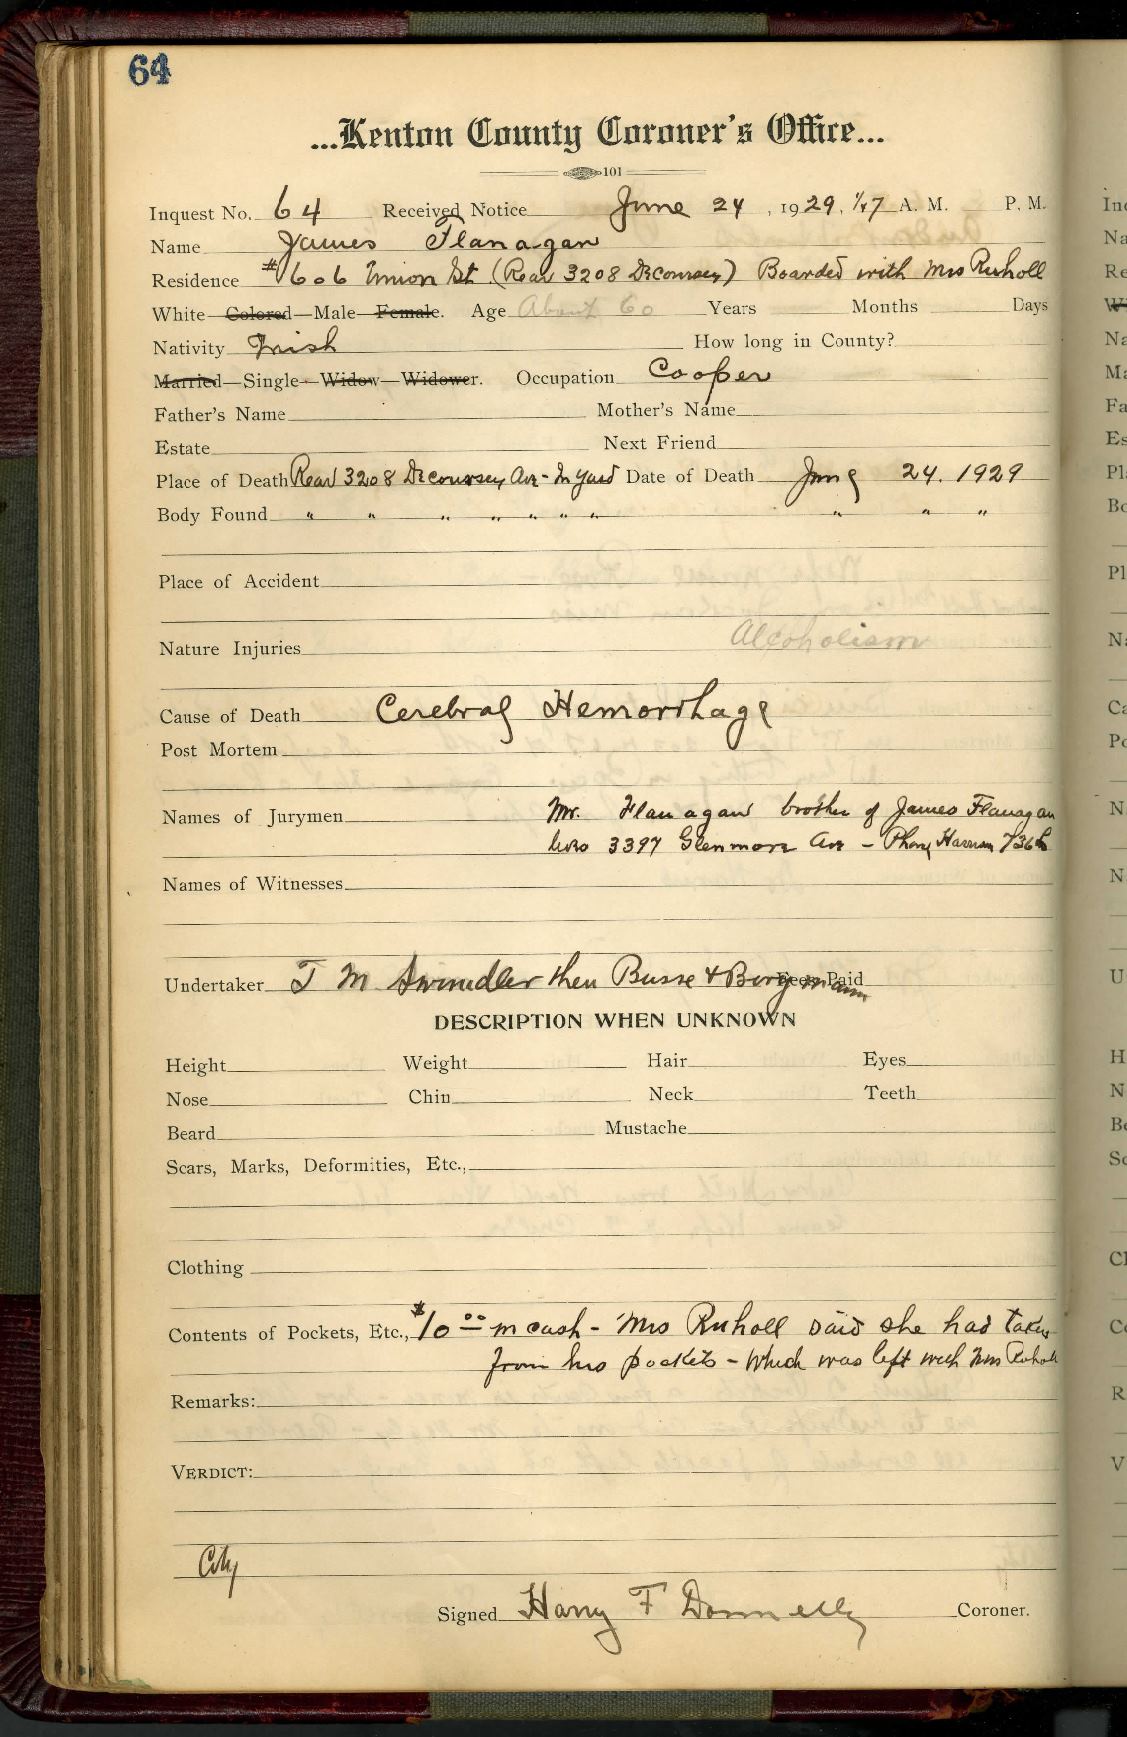 64
...Kenton County Coroner's Office...
101
Inquest No. 64 Received Notice June 24, 1929, A. M. P. M.
Name James Flanagan
Residence #606 Union St. (Rear 3208 Decoursey) Boarded with Mrs Ruholl
White—Colored—Male—Female. Age About 60 Years Months Days
Nativity Irish How long in County?
Married—Single—Widow—Widower. Occupation Cooper
Father's Name Mother's Name
Estate Next Friend
Place of Death Rear 3208 Decoursey Ave - In yard Date of Death June 24. 1929
Body Found " " " " " " " " " "
Place of Accident
Alcoholism
Nature Injuries
Cause of Death Cerebral Hemorrhage
Post Mortem
Names of Jurymen Mr. Flanagan brother of James Flanagan
lives 3397 Glenmore Ave - Phone Harrison
Names of Witnesses
Undertaker T M Swindler then Busse & Borgmann Fees Paid
DESCRIPTION WHEN UNKNOWN
Height Weight Hair Eyes
Nose Chin Neck Teeth
Beard Mustache
Scars, Marks, Deformities, Etc.,
Clothing
Contents of Pockets, Etc., $10 00 in cash - Mrs Ruholl said she had taken
from his pockets - which was left with Mrs Ruholl
Remarks:
VERDICT:
City
Signed Harry F Donnelly Coroner.